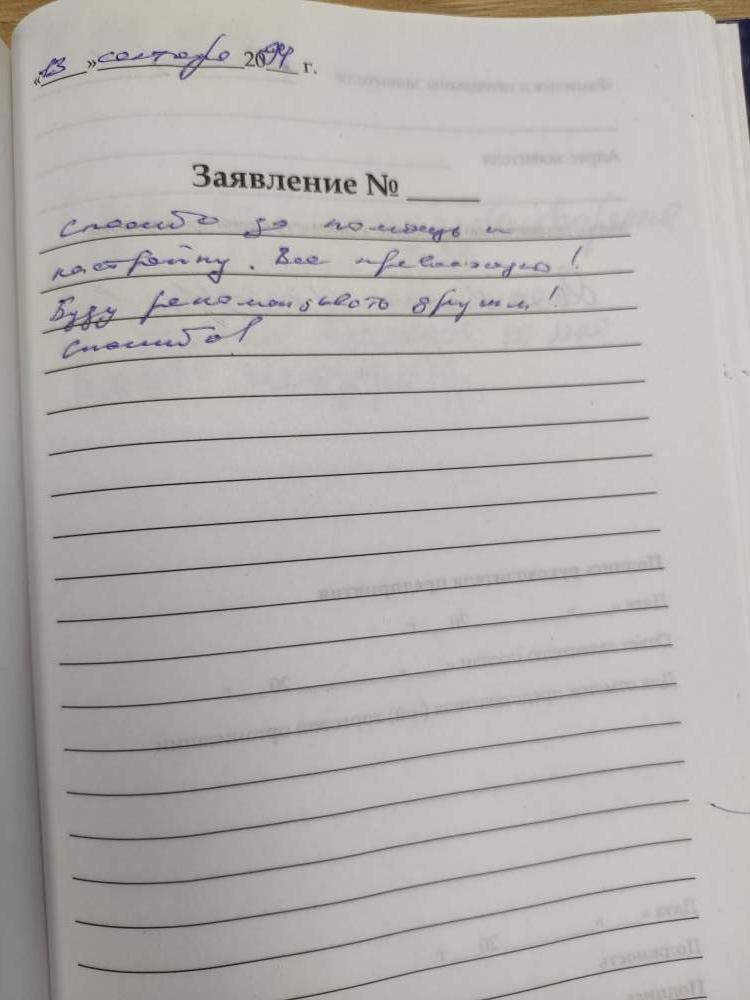 «13» сентября 2024 г.
Заявление № 
Спасибо за помощь и
настройку. Все превосходно!
Буду рекомендывать друзьям!
Спасибо!